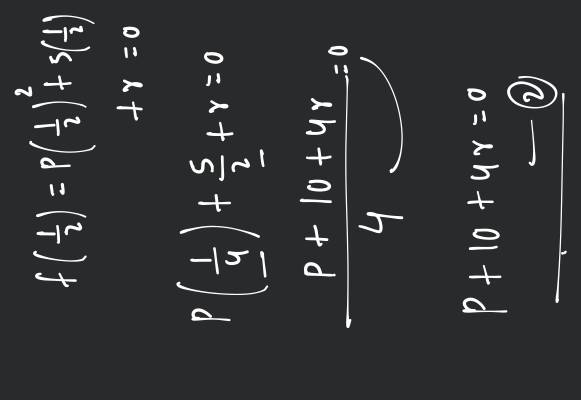 f(1/2) = p(1/2)² + 5(1/2)
+ r = 0
p(1/4) + 5/2 + r = 0
p + 10 + 4r = 0
4
p + 10 + 4r = 0
— ②